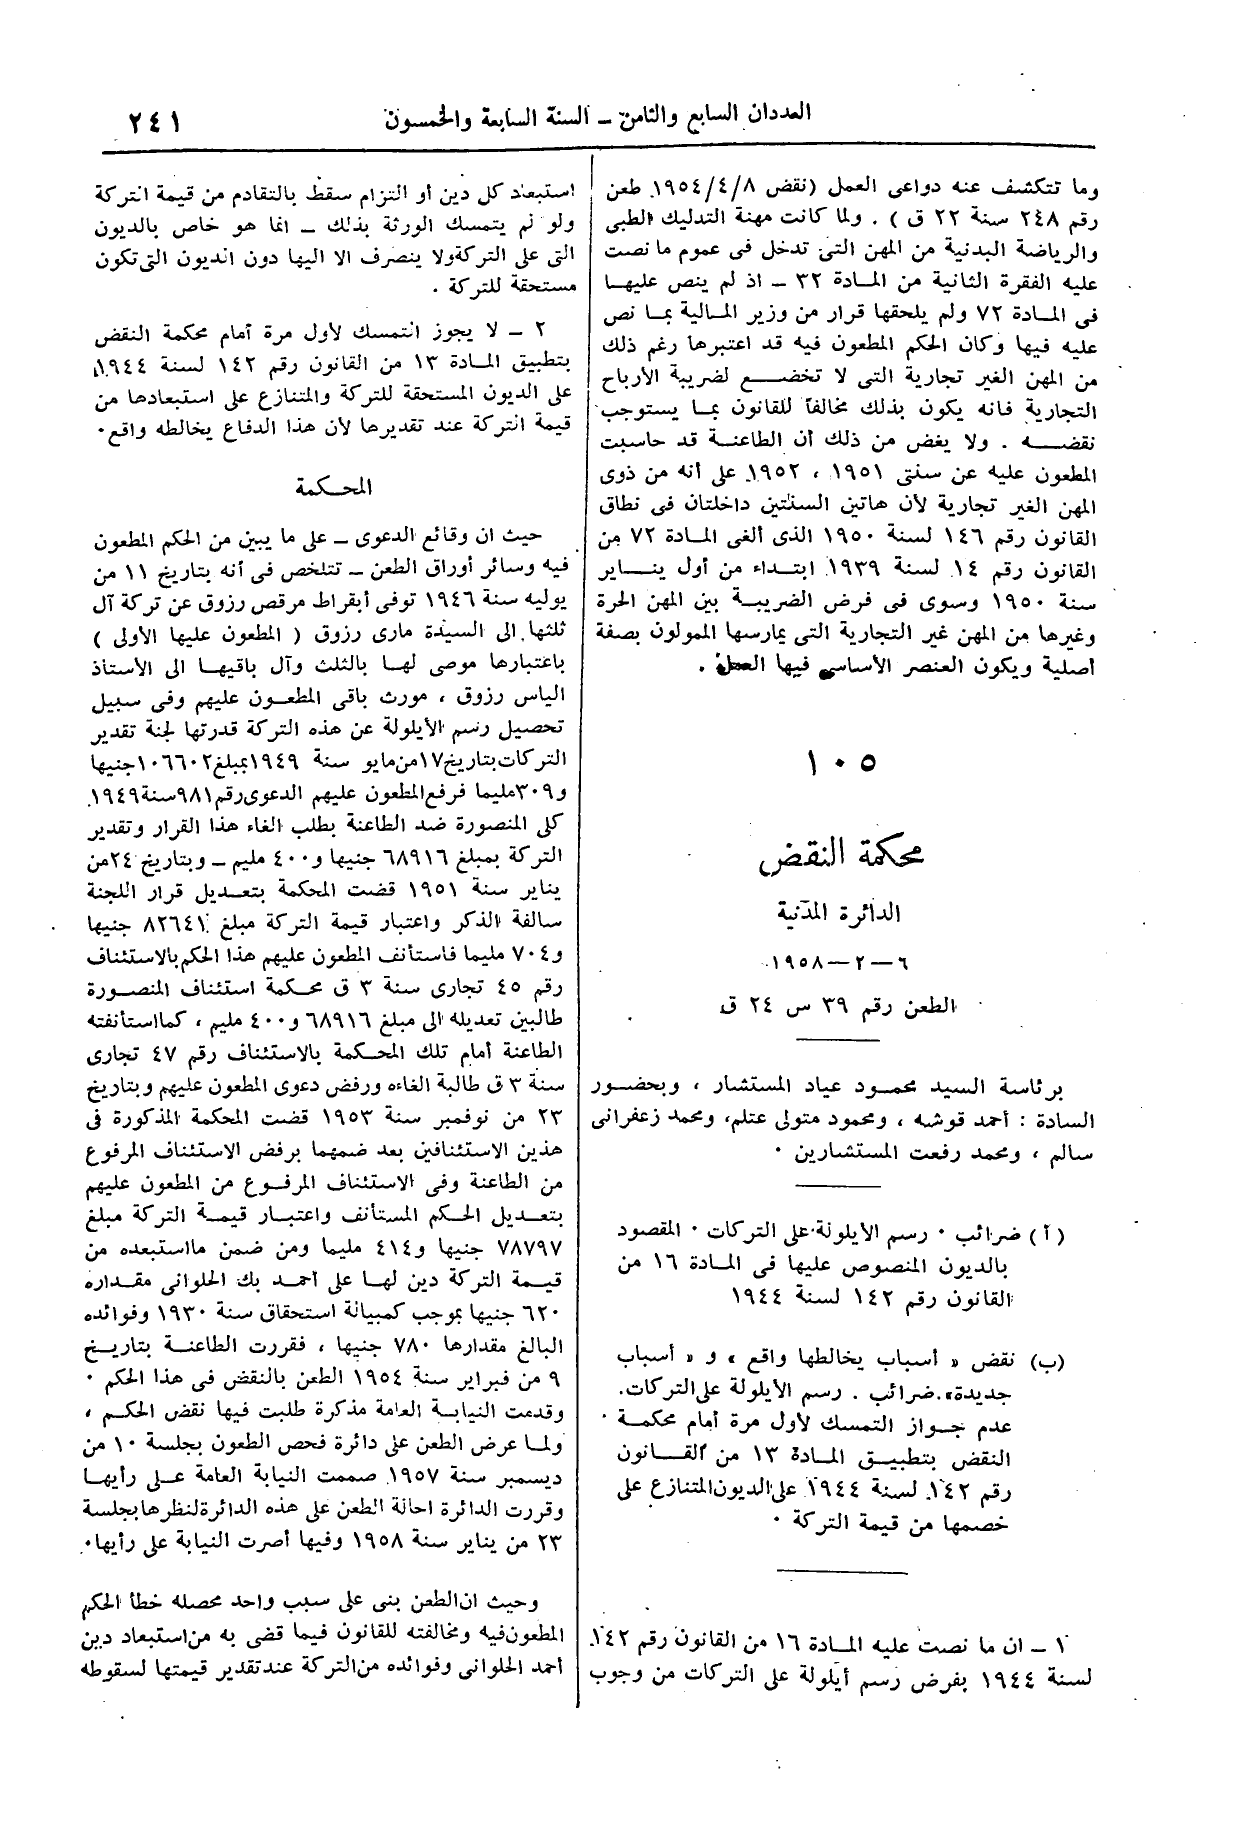 العددان السابع والثامن – السنة السابعة والخمسون
٢٤١
وما تتكشف عنه دواعى العمل (نقض ١٩٥٤/٤/٨ طعن
رقم ٢٤٨ سنة ٢٢ ق ) . ولما كانت مهنة التدليك الطبى
والرياضة البدنية من المهن التى تدخل فى عموم ما نصت
عليه الفقرة الثانية من المادة ٣٢ – اذ لم ينص عليها
فى المادة ٧٢ ولم يلحقها قرار من وزير المالية بما نص
عليه فيها وكان الحكم المطعون فيه قد اعتبرها رغم ذلك
من المهن الغير تجارية التى لا تخضع لضريبة الأرباح
التجارية فانه يكون بذلك مخالفاً للقانون بما يستوجب
نقضه . ولا يغض من ذلك أن الطاعنة قد حاسبت
المطعون عليه عن سنتى ١٩٥١ ، ١٩٥٢ على أنه من ذوى
المهن الغير تجارية لأن هاتين السنتين داخلتان فى نطاق
القانون رقم ١٤٦ لسنة ١٩٥٠ الذى ألغى المادة ٧٢ من
القانون رقم ١٤ لسنة ١٩٣٩ ابتداء من أول يناير
سنة ١٩٥٠ وسوى فى فرض الضريبة بين المهن الحرة
وغيرها من المهن غير التجارية التى يمارسها الممولون بصفة
أصلية ويكون العنصر الأساسى فيها العمل .
١٠٥
محكمة النقض
الدائرة المدنية
٦ – ٢ – ١٩٥٨
الطعن رقم ٣٩ س ٢٤ ق
برئاسة السيد محمود عياد المستشار ، وبحضور
السادة : أحمد قوشه ، ومحمود متولى عتلم، ومحمد زعفرانى
سالم ، ومحمد رفعت المستشارين .
( أ ) ضرائب . رسم الأيلولة على التركات . المقصود
بالديون المنصوص عليها فى المادة ١٦ من
القانون رقم ١٤٢ لسنة ١٩٤٤
(ب) نقض « أسباب يخالطها واقع » و « أسباب
جديدة». ضرائب . رسم الأيلولة على التركات.
عدم جواز التمسك لأول مرة أمام محكمة
النقض بتطبيق المادة ١٣ من القانون
رقم ١٤٢ لسنة ١٩٤٤ على الديون المتنازع على
خصمها من قيمة التركة .
١ – ان ما نصت عليه المادة ١٦ من القانون رقم ١٤٢
لسنة ١٩٤٤ بفرض رسم أيلولة على التركات من وجوب
استبعاد كل دين أو التزام سقط بالتقادم من قيمة التركة
ولو لم يتمسك الورثة بذلك – انما هو خاص بالديون
التى على التركة ولا ينصرف الا اليها دون الديون التى تكون
مستحقة للتركة .
٢ – لا يجوز التمسك لأول مرة أمام محكمة النقض
بتطبيق المادة ١٣ من القانون رقم ١٤٢ لسنة ١٩٤٤
على الديون المستحقة للتركة والمتنازع على استبعادها من
قيمة التركة عند تقديرها لأن هذا الدفاع يخالطه واقع.
المحكمة
حيث ان وقائع الدعوى – على ما يبين من الحكم المطعون
فيه وسائر أوراق الطعن – تتلخص فى أنه بتاريخ ١١ من
يوليه سنة ١٩٤٦ توفى أبقراط مرقص رزوق عن تركة آل
ثلثها الى السيدة مارى رزوق ( المطعون عليها الأولى )
باعتبارها موصى لها بالثلث وآل باقيها الى الأستاذ
الياس رزوق ، مورث باقى المطعون عليهم وفى سبيل
تحصيل رسم الأيلولة عن هذه التركة قدرتها لجنة تقدير
التركات بتاريخ ١٧ من مايو سنة ١٩٤٩ بمبلغ ١٠٦٦٠٢ جنيها
و ٣٠٩ مليما فرفع المطعون عليهم الدعوى رقم ٩٨١ سنة ١٩٤٩
كلى المنصورة ضد الطاعنة بطلب الغاء هذا القرار وتقدير
التركة بمبلغ ٦٨٩١٦ جنيها و ٤٠٠ مليم – وبتاريخ ٢٤ من
يناير سنة ١٩٥١ قضت المحكمة بتعديل قرار اللجنة
سالفة الذكر واعتبار قيمة التركة مبلغ ٨٢٦٤١ جنيها
و ٧٠٤ مليما فاستأنف المطعون عليهم هذا الحكم بالاستئناف
رقم ٤٥ تجارى سنة ٣ ق محكمة استئناف المنصورة
طالبين تعديله الى مبلغ ٦٨٩١٦ و ٤٠٠ مليم ، كما استأنفته
الطاعنة أمام تلك المحكمة بالاستئناف رقم ٤٧ تجارى
سنة ٣ ق طالبة الغاءه ورفض دعوى المطعون عليهم وبتاريخ
٢٣ من نوفمبر سنة ١٩٥٣ قضت المحكمة المذكورة فى
هذين الاستئنافين بعد ضمهما برفض الاستئناف المرفوع
من الطاعنة وفى الاستئناف المرفوع من المطعون عليهم
بتعديل الحكم المستأنف واعتبار قيمة التركة مبلغ
٧٨٧٩٧ جنيها و ٤١٤ مليما ومن ضمن ما استبعده من
قيمة التركة دين لها على أحمد بك الحلوانى مقداره
٦٢٠ جنيها بموجب كمبيالة استحقاق سنة ١٩٣٠ وفوائده
البالغ مقدارها ٧٨٠ جنيها ، فقررت الطاعنة بتاريخ
٩ من فبراير سنة ١٩٥٤ الطعن بالنقض فى هذا الحكم .
وقدمت النيابة العامة مذكرة طلبت فيها نقض الحكم ،
ولما عرض الطعن على دائرة فحص الطعون بجلسة ١٠ من
ديسمبر سنة ١٩٥٧ صممت النيابة العامة على رأيها
وقررت الدائرة احالة الطعن على هذه الدائرة لنظرها بجلسة
٢٣ من يناير سنة ١٩٥٨ وفيها أصرت النيابة على رأيها.
وحيث ان الطعن بنى على سبب واحد محصله خطأ الحكم
المطعون فيه ومخالفته للقانون فيما قضى به من استبعاد دين
أحمد الحلوانى وفوائده من التركة عند تقدير قيمتها لسقوطه